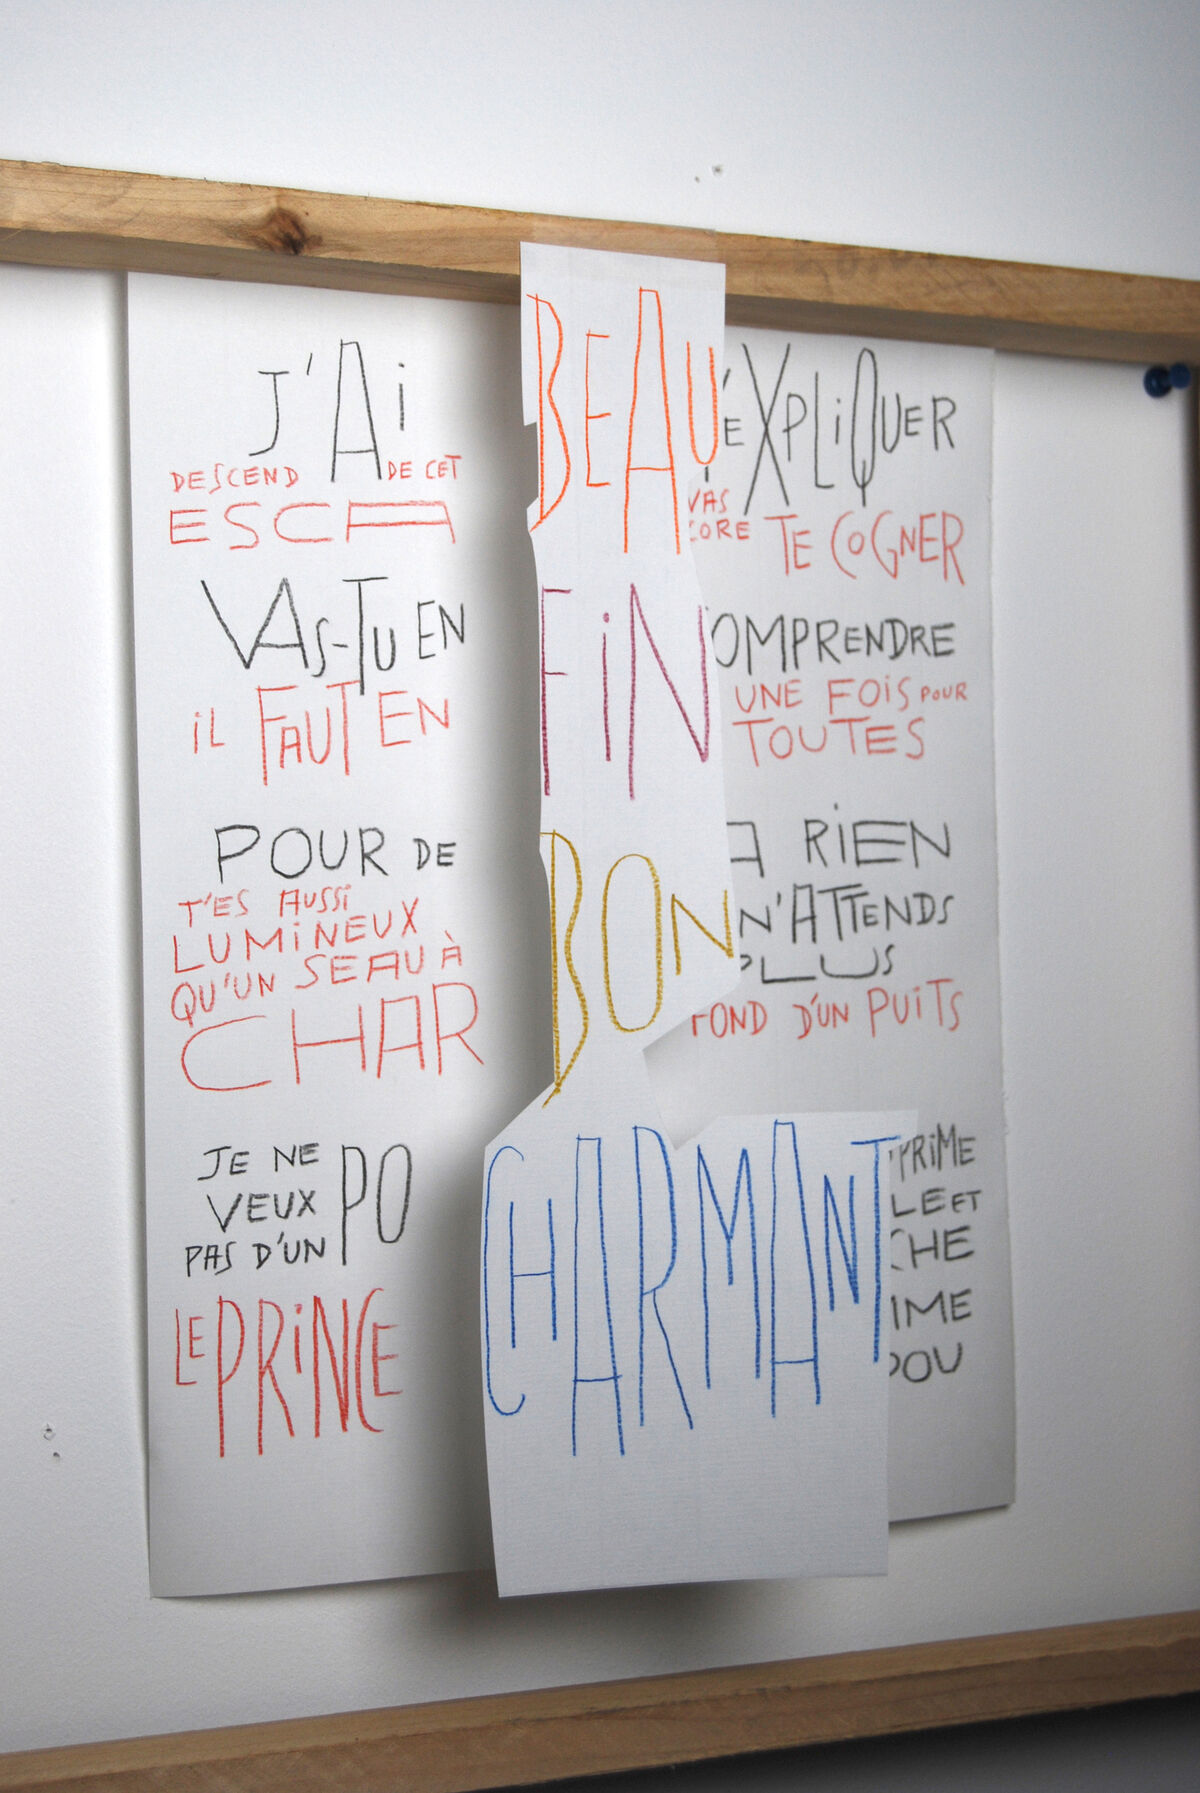 J'Ai
DESCEND DE CET
ESCA
VAS-TU EN
iL FAUT EN
POUR DE
T'ES AUSSi
LUMiNEUX
QU'UN SEAU À
CHAR
JE NE
VEUX
PAS D'UN PO
LE PRiNCE
BEAU
FiN
BON
CHARMANT
'EXPLiQUER
VAS
CORE TE COGNER
OMPRENDRE
UNE FOiS POUR
TOUTES
A RiEN
N'ATTENDS
PLUS
FOND D'UN PUiTS
PRiME
LE ET
CHE
IME
POU